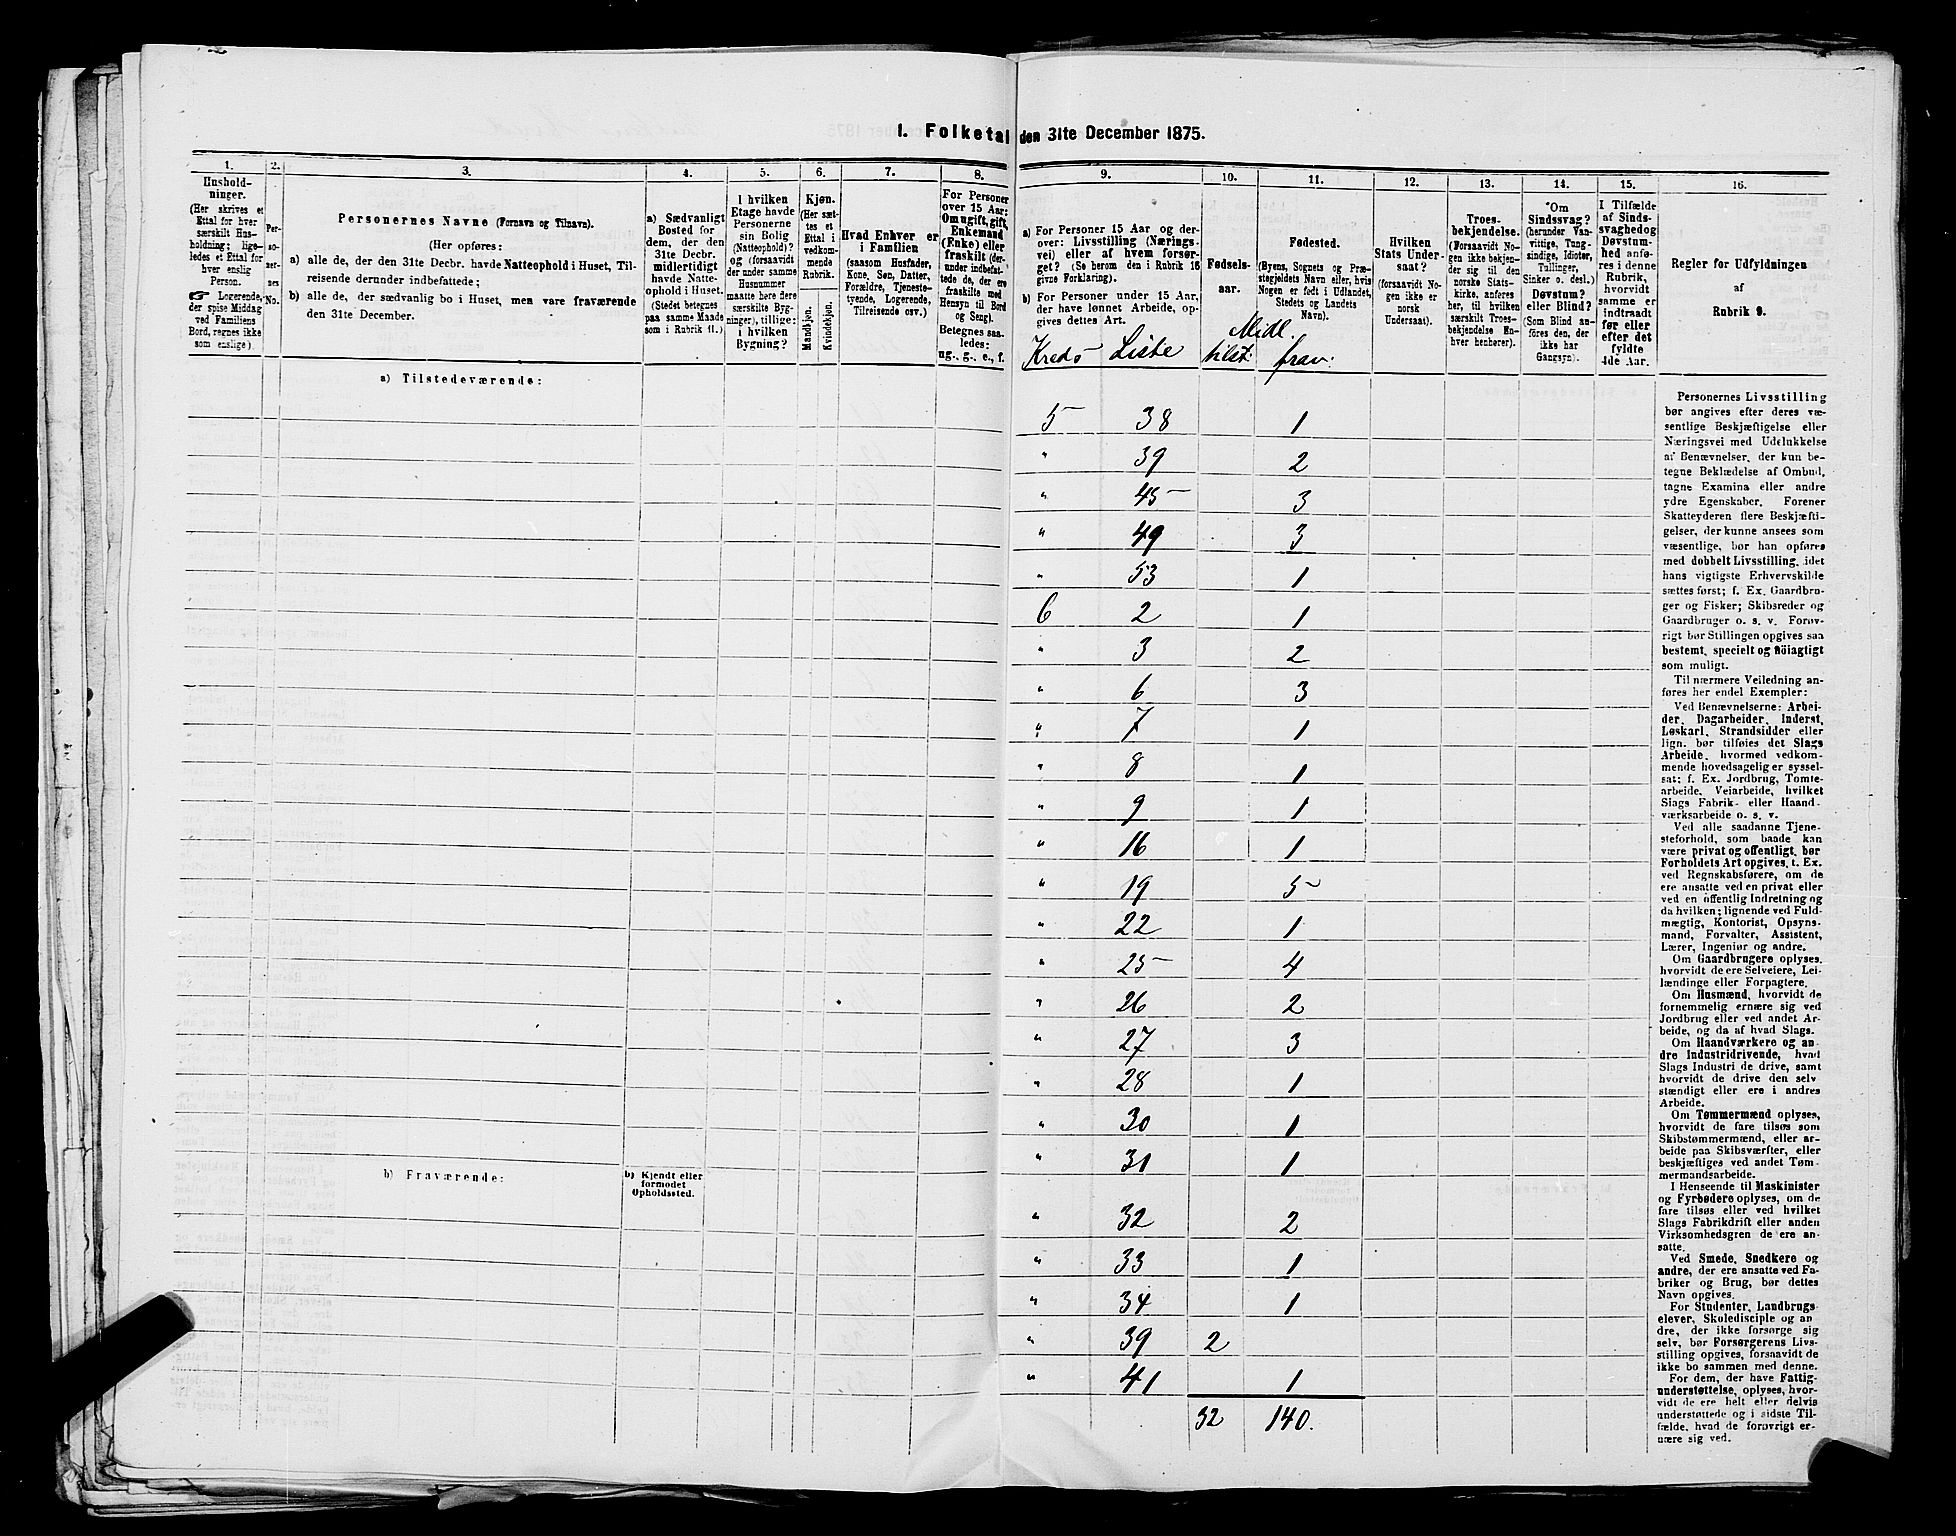 1. Folketal den 31te December 1875.
1. 2. 3. 4. 5. 6. 7. 8. 9. 10. 11. 12. 13. 14. 15. 16.
Hushold-
ninger.
(Her skrives et
Ettal for hver
særskilt Hus-
holdning; lige-
ledes et Ettal for
hver enslig
Person.
☞ Logerende,
der spise Middag
ved Familiens
Bord, regnes ikke
som enslige)
Per-
so-
ner-
nes
No.
Personernes Navne (Fornavn og Tilnavn).
(Her opføres:
a) alle de, der den 31te Decbr. havde Natteophold i Huset, Til-
reisende derunder indbefattede;
b) alle de, der sædvanlig bo i Huset, men vare fraværende
den 31te December.
a) Sædvanligt
Bosted for
dem, der den
31te Decbr.
midlertidigt
havde Natte-
ophold i Huset.
(Stedet betegnes
paa samme Maade
som i Rubrik 11.)
I hvilken
Etage havde
Personerne
sin Bolig
(Natteophold)?
og (forsaavidt
der under samme
Husnummer
maatte høre flere
særskilte Byg-
ninger), tillige:
i hvilken
Bygning?
Kjøn.
(Her sæt-
tes et
Ettal i
vedkom-
mende
Rubrik.
Mandkjøn.
Kvindekjøn.
Hvad Enhver er
i Familien
(saasom Husfader,
Kone, Søn, Datter,
Forældre, Tjeneste-
tyende, Logerende,
Tilreisende osv.)
For Personer
over 15 Aar:
Om ugift, gift,
Enkemand
(Enke) eller
fraskilt (der-
under indbefat-
tede de, der ere
fraskilte med
Hensyn til Bord
og Seng).
Betegnes saa-
ledes:
ug., g., e., f.
a) For Personer 15 Aar og der-
over: Livsstilling (Nærings-
vei) eller af hvem forsør-
get? (Se herom den i Rubrik 16
givne Forklaring).
b) For Personer under 15 Aar,
der have lønnet Arbeide, op-
gives dettes Art.
Kreds Liste
Fødsels-
aar.
Midl.
tilst. frav.
Fødested.
(Byens, Sognets og Præ-
stegjeldets Navn eller, hvis
Nogen er født i Udlandet,
Stedets og Landets
Navn).
Hvilken
Stats Under-
saat?
(forsaavidt No-
gen ikke er
norsk
Undersaat).
Troes-
bekjendelse.
(Forsaavidt No-
gen ikke bekjen-
der sig til den
norske Stats-
kirke, anføres
her, til hvilken
særskilt Troes-
bekjendelse En-
hver henhører).
Om
Sindssvag?
(herunder Van-
vittige, Tung-
sindige, Idioter,
Tullinger,
Sinker o. desl.)
Døvstum?
eller Blind?
(Som Blind an-
føres den, der
ikke har
Gangsyn).
I Tilfælde
af Sinds-
svaghed og
Døvstum-
hed anfø-
res i denne
Rubrik,
hvorvidt
samme er
indtraadt
før eller
efter det
fyldte
4de Aar.
Regler for Udfyldningen
af
Rubrik 9.
a) Tilstedeværende:
5 38 1
" 39 2
" 45 3
" 49 3
" 53 1
6 2 1
" 3 2
" 6 3
" 7 1
" 8 1
" 9 1
" 16 1
" 19 5
" 22 1
" 25 4
" 26 2
" 27 3
" 28 1
" 30 1
" 31 1
b) Fraværende:
b) Kjendt eller
formodet
Opholdssted.
" 32 2
" 33 1
" 34 1
" 39 2
" 41 1
32 140.
Personernes Livsstilling
bør angives efter deres væ-
sentlige Beskjæftigelse eller
Næringsvei med Udelukkelse
af Benævnelser, der kun be-
tegne Beklædelse af Ombud,
tagne Examina eller andre
ydre Egenskaber. Forener
Skatteyderen flere Beskjæfti-
gelser, der kunne ansees som
væsentlige, bør han opføres
med dobbelt Livsstilling, idet
hans vigtigste Erhvervskilde
sættes først; f. Ex. Gaardbru-
ger og Fisker; Skibsreder og
Gaardbruger o. s. v. Forøv-
rigt bør Stillingen opgives saa
bestemt, specielt og nøiagtigt
som muligt.
Til nærmere Veiledning an-
føres her endel Exempler:
Ved Benævnelserne: Arbei-
der, Dagarbeider, Inderst,
Løskarl, Strandsidder eller
lign. bør tilføies det Slags
Arbeide, hvormed vedkom-
mende hovedsagelig er syssel-
sat; f. Ex. Jordbrug, Tomte-
arbeide, Veiarbeide, hvilket
Slags Fabrik- eller Haand-
værksarbeide o. s. v.
Ved alle saadanne Tjene-
steforhold, som baade kan
være privat og offentligt, bør
Forholdets Art opgives, t. Ex.
ved Regnskabsførere, om de
ere ansatte ved en privat eller
ved en offentlig Indretning og
da hvilken; lignende ved Fuld-
mægtig, Kontorist, Opsyns-
mand, Forvalter, Assistent,
Lærer, Ingeniør og andre.
Om Gaardbrugere oplyses,
hvorvidt de ere Selveiere, Lei-
lændinge eller Forpagtere.
Om Husmænd, hvorvidt de
fornemmelig ernære sig ved
Jordbrug eller ved andet Ar-
beide, og da af hvad Slags.
Om Haandværkere og an-
dre Industridrivende, hvad
Slags Industri de drive, samt
hvorvidt de drive den selv-
stændigt eller ere i andres
Arbeide.
Om Tømmermænd oplyses,
hvorvidt de fare tilsøs som
Skibstømmermænd, eller ar-
beide paa Skibsværfter, eller
beskjæftiges ved andet Tøm-
mermandsarbeide.
I Henseende til Maskinister
og Fyrbødere oplyses, om de
fare tilsøs eller ved hvilket
Slags Fabrikdrift eller anden
Virksomhedsgren de ere an-
satte.
Ved Smede, Snedkere og
andre, der ere ansatte ved Fa-
briker og Brug, bør dettes
Navn opgives.
For Studenter, Landbrugs-
elever, Skoledisciple og an-
dre, der ikke forsørge sig
selv, bør Forsørgerens Livs-
stilling opgives, forsaavidt de
ikke bo sammen med denne.
For dem, der have Fattig-
understøttelse, oplyses, hvor-
vidt de ere helt eller delvis
understøttede og i sidste Til-
fælde, hvad de forøvrigt er-
nære sig ved.